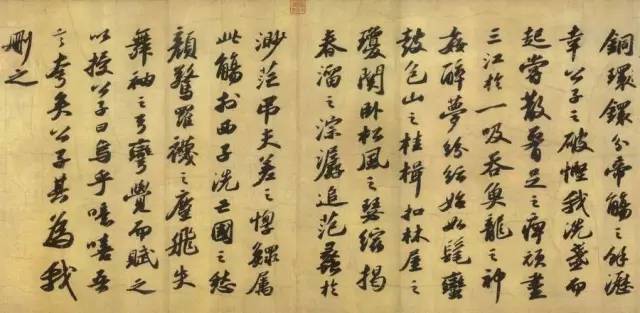 銅鐶鐍分帝觴之餘瀝
幸公子之破慳我洗盞而
起嘗散腰足之痹頑盡
三江於一吸吞魚龍之神
姦醉夢紛紜始如髦蠻
鼓包山之桂楫扣林屋之
瓊關臥松風之瑟縮揭
春溜之淙潺追范蠡於
渺茫吊夫差之惸鰥屬
此觴於西子洗亡國之愁
顏驚羅襪之塵飛失
舞袖之弓彎覺而賦之
以授公子曰烏乎噫嘻吾
言夸矣公子其為我
刪之